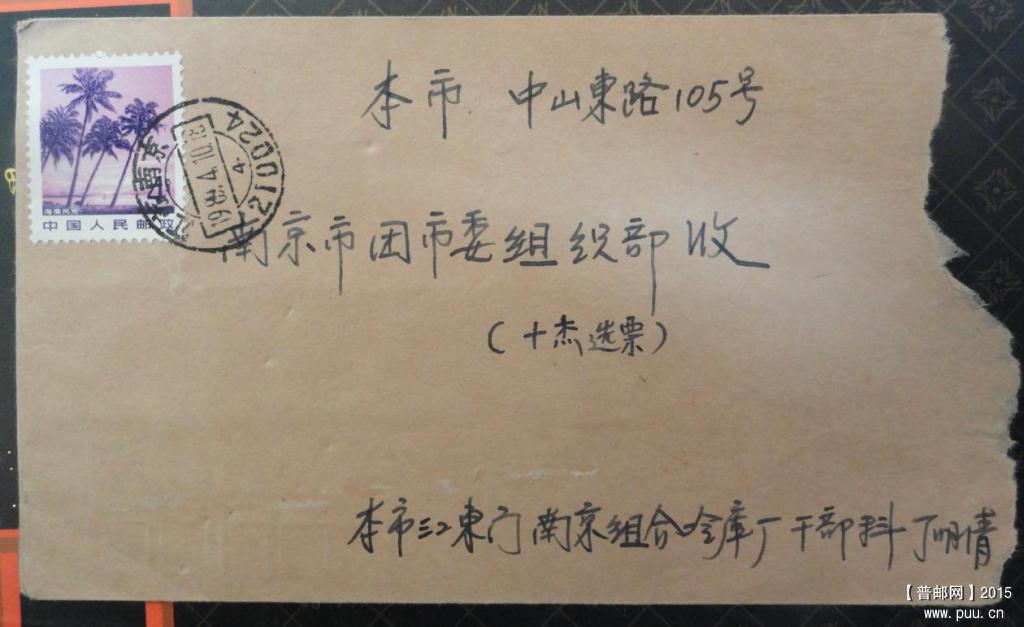 本市 中山東路105号
海南风光
中国人民邮政
南京
4
2100124
南京市团市委组织部收
（十杰选票）
本市江東门南京组合冷库厂干部科丁明情
【普邮网】2015
www.puu.cn